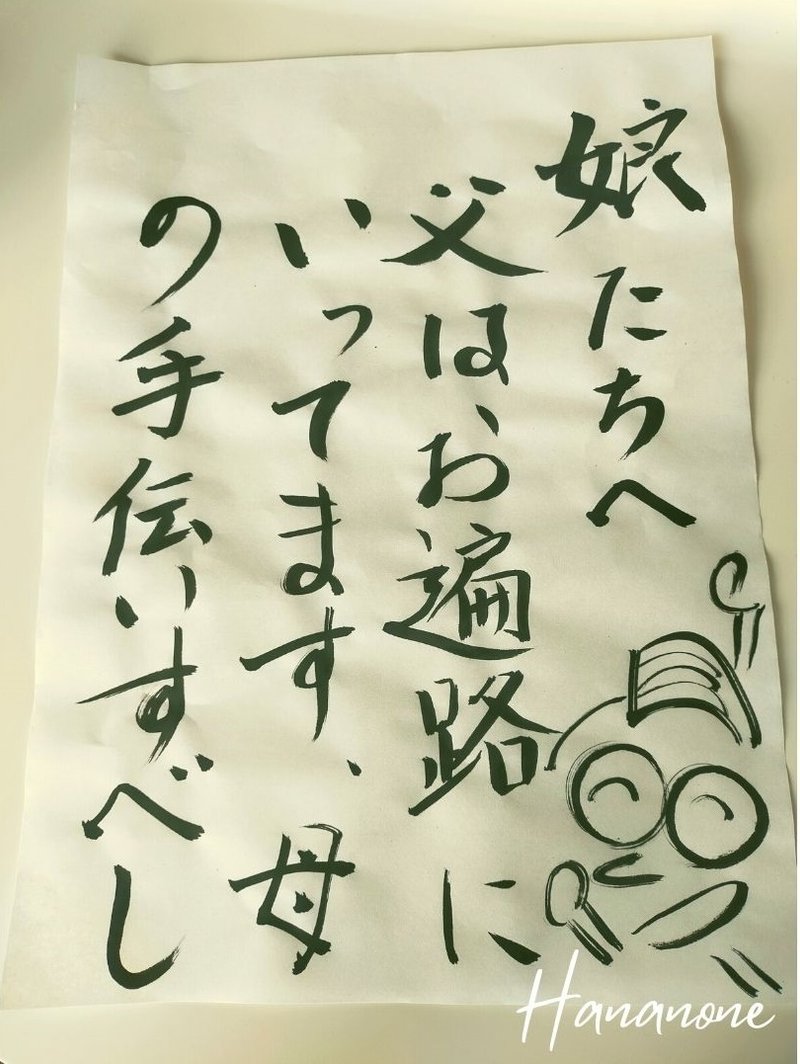 娘たちへ
父は、お遍路に
いってます、母
の手伝いすべし
Hananone